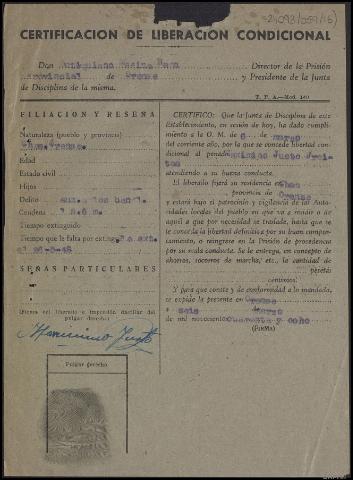 24093/059/16)
CERTIFICACION DE LIBERACIÓN CONDICIONAL
Don Director de la Prisión
Provincial de Orense y Presidente de la Junta
de Disciplina de la misma.
T. P. A.—Mod. 140
FILIACIÓN Y RESEÑA
Naturaleza (pueblo y provincia)
Orense.
Edad
Estado civil
Hijos
Delito
Condena
Tiempo extinguido
Tiempo que le falta por exting.
SEÑAS PARTICULARES
(Firma del liberado e impresión dactilar del
pulgar derecho)
Pulgar derecho
CERTIFICO: Que la Junta de Disciplina de este
Establecimiento, en sesión de hoy, ha dado cumplimiento
a la O. M. de 6 de marzo
del corriente año, por la que se concede libertad condicional
al penado Justo
atendiendo a su buena conducta.
El liberado fijará su residencia en
provincia de Orense
y estará bajo el patronato y vigilancia de las Autoridades
locales del pueblo en que va a residir o de
aquel a que por necesidad se traslade, hasta que se
le conceda la libertad definitiva por su buen comportamiento,
o reingrese en la Prisión de procedencia
por su mala conducta. Se le entrega, en concepto de
ahorros, socorros de marcha, etc., la cantidad de
pesetas
céntimos.
Y para que conste y de conformidad a lo mandado,
se expide la presente en Orense
a seis de marzo
de mil novecientos cuarenta y ocho
(FIRMA)